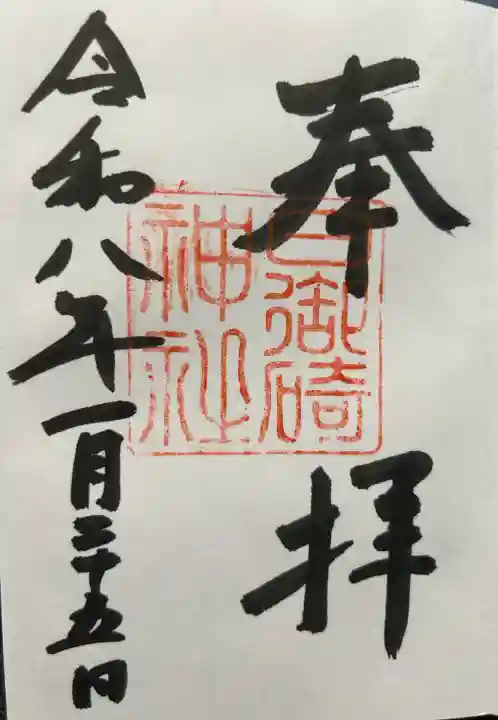 奉拝
日御碕
神社
令和八年一月二十五日